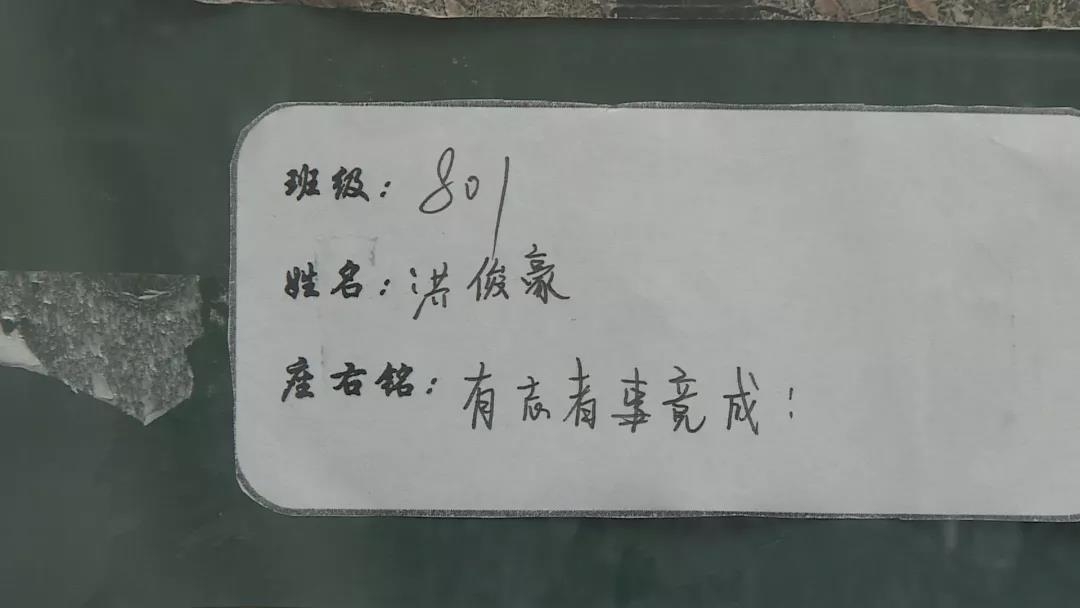 班级：801
姓名：洪俊豪
座右铭：有志者事竟成！